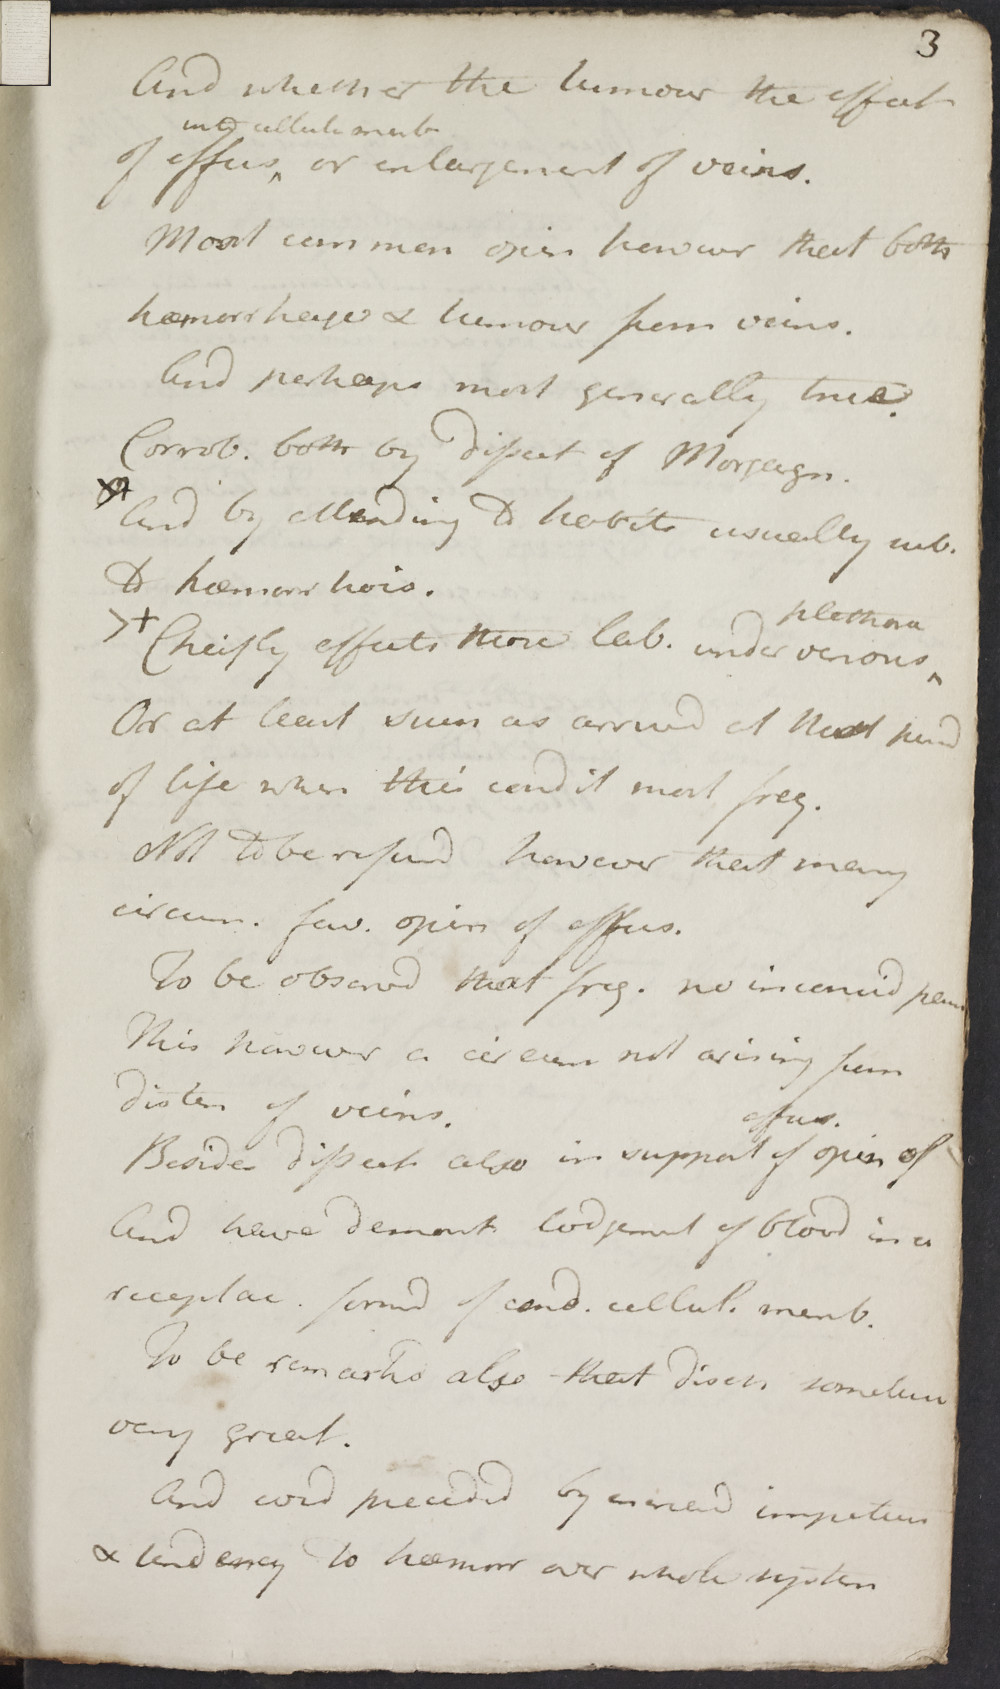 3
And whether the tumour the effect
into cellul. memb
of effus^ or enlargement of veins.
Most common opin however that both
hæmorrhage & tumour from veins.
And perhaps most generally true.
Corrob. both by Dissect of Morgagn.
And by attending to habits usually sub.
to hæmorrhois.
plethora
>+ Cheifly effects those lab. under venous^
Or at least such as arrived at that period
of life when this condit most freq.
Not to be refused however that many
circum. fav. opin of effus.
To be observed that freq. no
This however a circum not arising from
disten of veins.
effus.
Beside Dissect also in support of opin of
And have demonst lodgement of blood in a
receptac. formd of cond. cellul. memb.
To be remarkd also that disch sometimes
very great.
And preceded by increasd impetus
& tendency to hæmorr over whole system